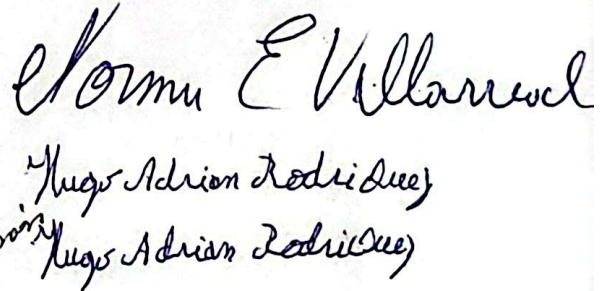 Norma E Villarreal
Hugo Adrian Rodriguez
Hugo Adrian Rodriguez